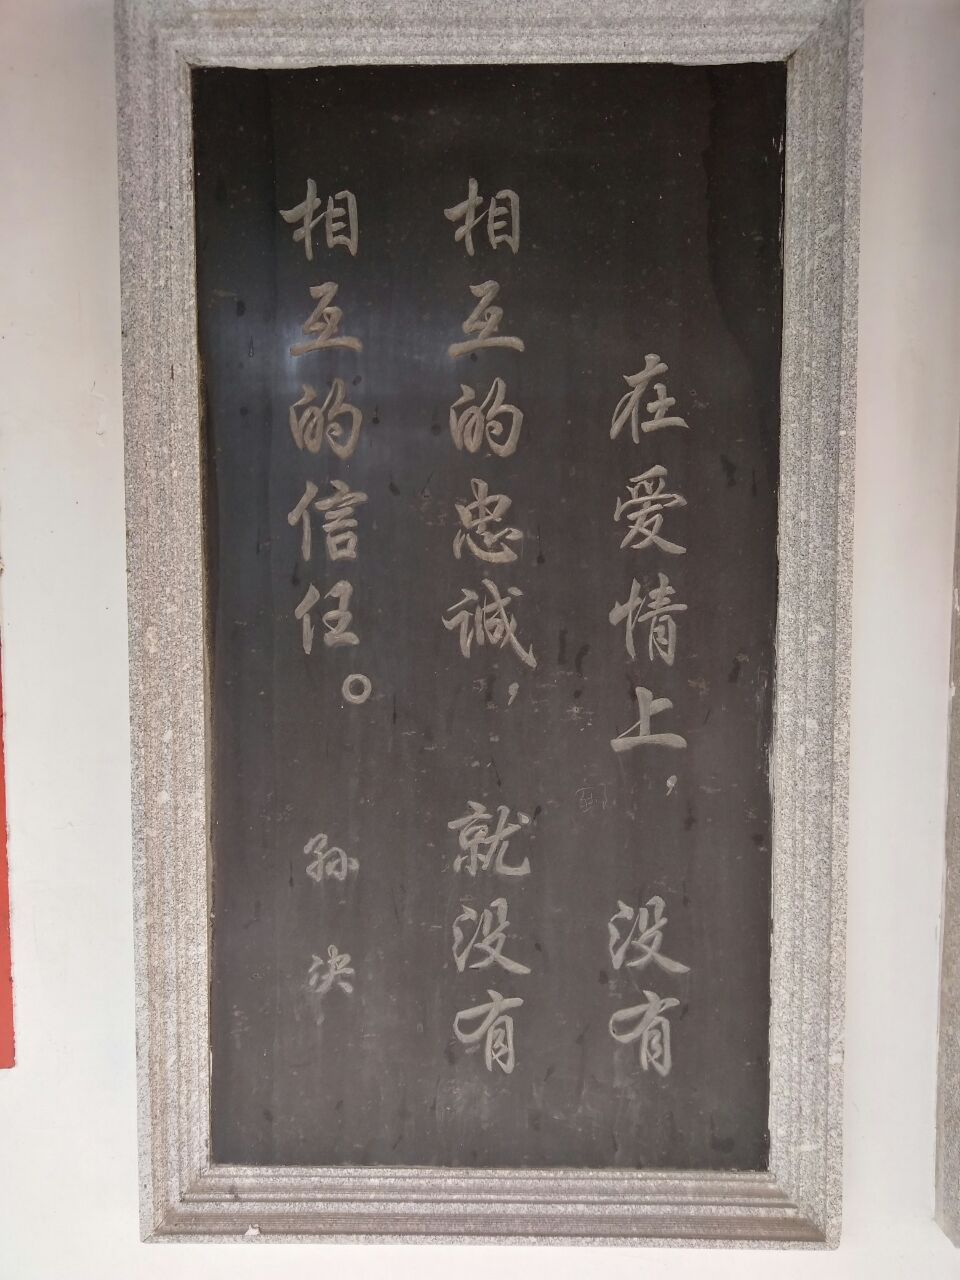 在爱情上，没有
相互的忠诚，就没有
相互的信任。孙泱